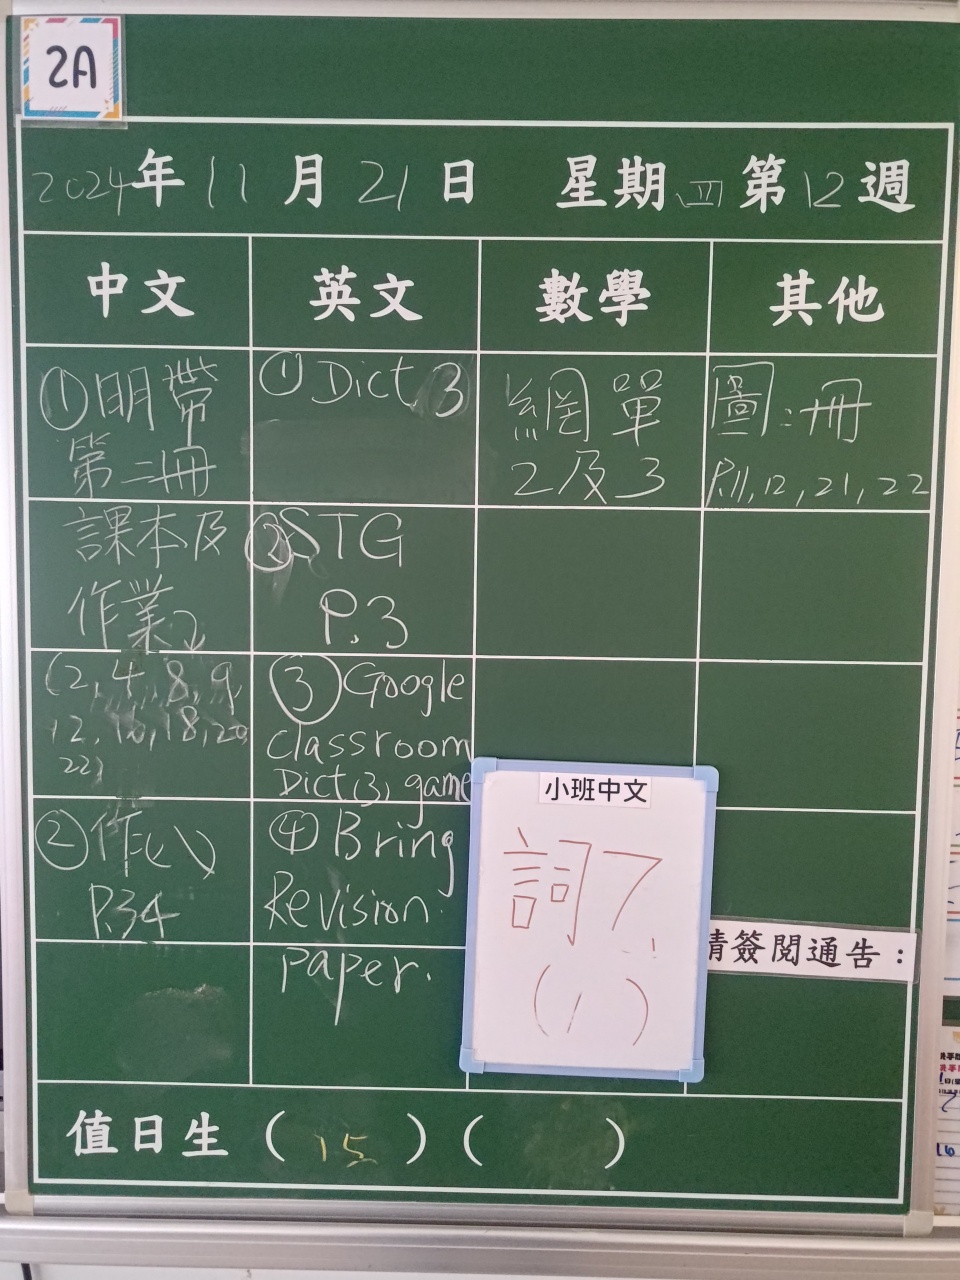 2A
2024年11月21日 星期四第12週
中文
英文
數學
其他
①明帶
第二冊
課本及
作業2
(2, 4, 8, 9,
12, 16, 18, 20,
22)
②作(八)
P.34
① Dict 3
② STG
P.3
③ Google
classroom
Dict (3), game
④ Bring
Revision
paper.
網單
2及3
圖:冊
P.11, 12, 21, 22
小班中文
詞7
(1)
請簽閱通告：
值日生（15）（ ）